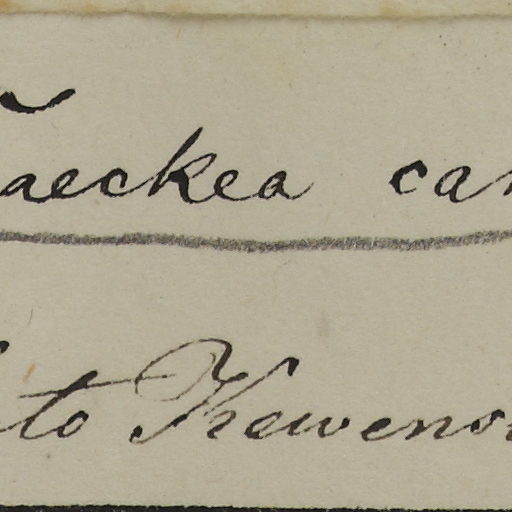 aeckea ca
to Keweno